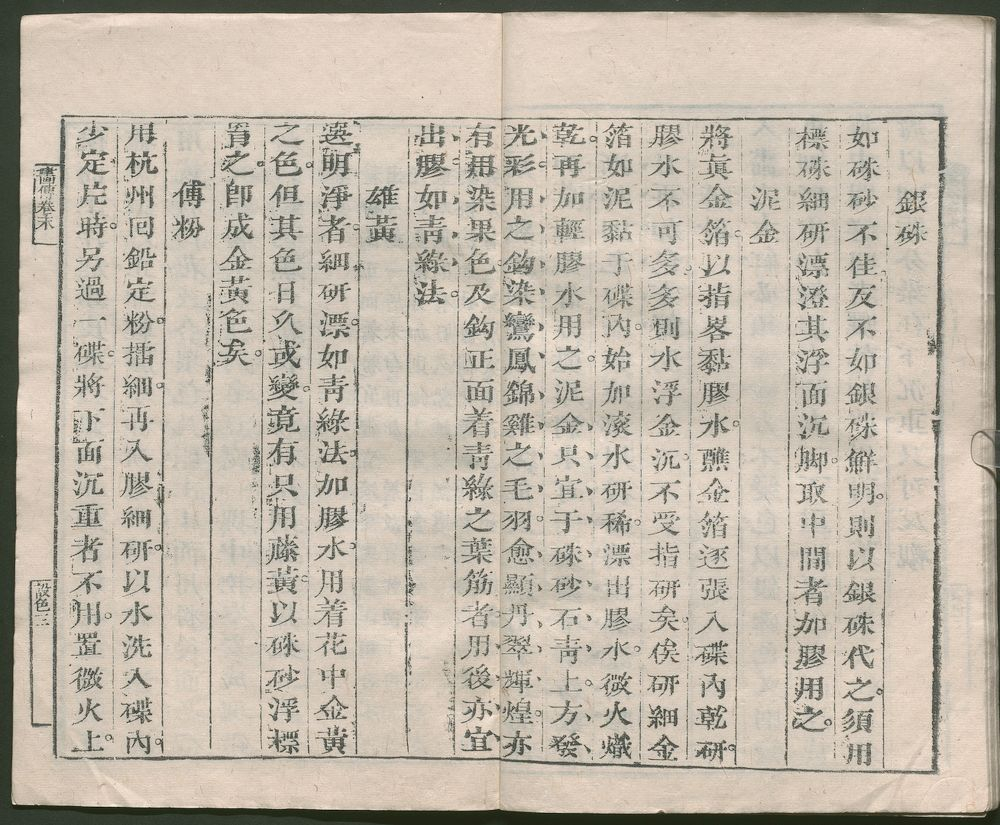 銀硃
如硃砂不佳反不如銀硃鮮明則以銀硃代之須用
標硃細研漂澄其浮面沉脚取中間者加膠用之
泥金
將眞金箔以指畧黏膠水蘸金箔逐張入碟內乾研
膠水不可多多則水浮金沉不受指研矣俟研細金
箔如泥黏于碟內始加滚水研稀漂出膠水微火熾
乾再加輕膠水用之泥金只宜于硃砂石靑上方發
光彩用之鈎染鸞鳳錦雞之毛羽愈顯丹翠輝煌亦
有用染果色及鈎正面着靑綠之葉筋者用後亦宜
出膠如靑綠法
雄黃
選明淨者細研漂如靑綠法加膠水用着花中金黃
之色但其色日久或變竟有只用藤黃以硃砂浮標
罩之卽成金黃色矣
傅粉
用杭州回鉛定粉擂細再入膠細研以水洗入碟內
少定片時另過一碟將下面沉重者不用置微火上
畵傳卷末
設色三